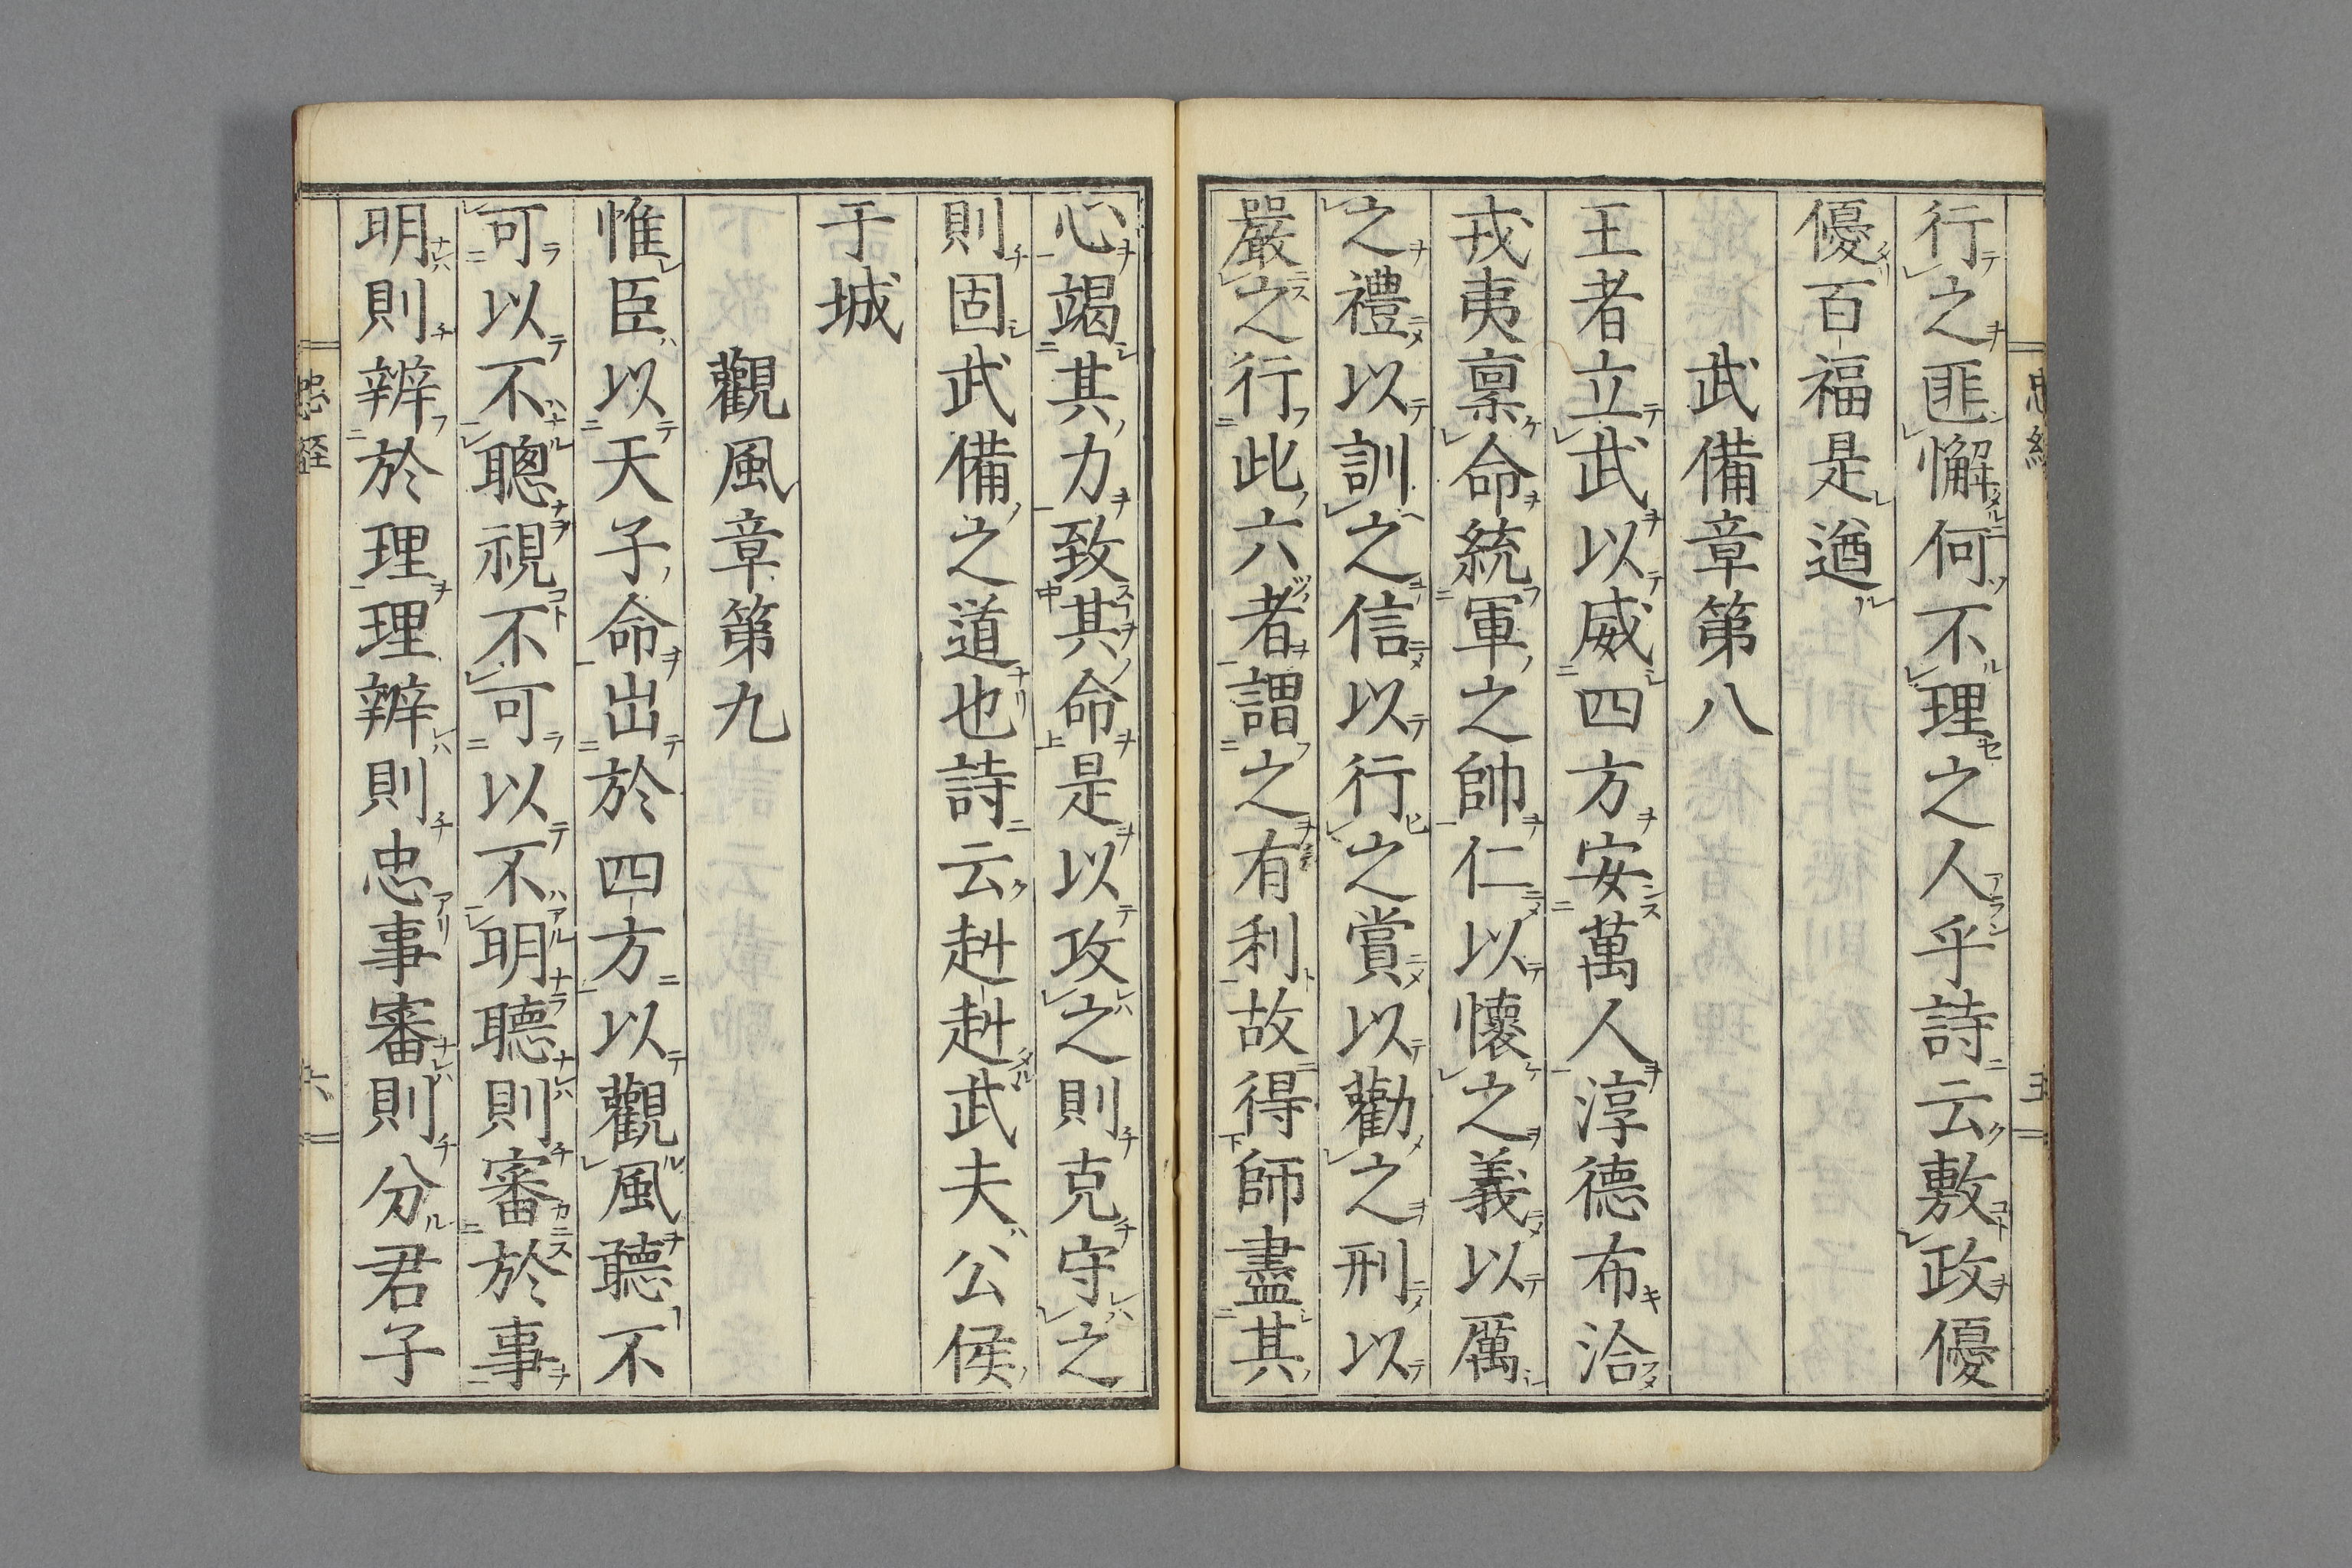 行之匪懈何不理之人乎詩云敷政優
優百福是遒
武備章第八
王者立武以威四方安萬人淳德布洽
戎夷稟命統軍之帥仁以懷之義以厲
之禮以訓之信以行之賞以勸之刑以
嚴之行此六者謂之有利故得師盡其
心竭其力致其命是以攻之則克守之
則固武備之道也詩云赳赳武夫公侯
于城
觀風章第九
惟臣以天子命出於四方以觀風聽不
可以不聰視不可以不明聽則審於事
明則辨於理理辨則忠事審則分君子
忠経
六